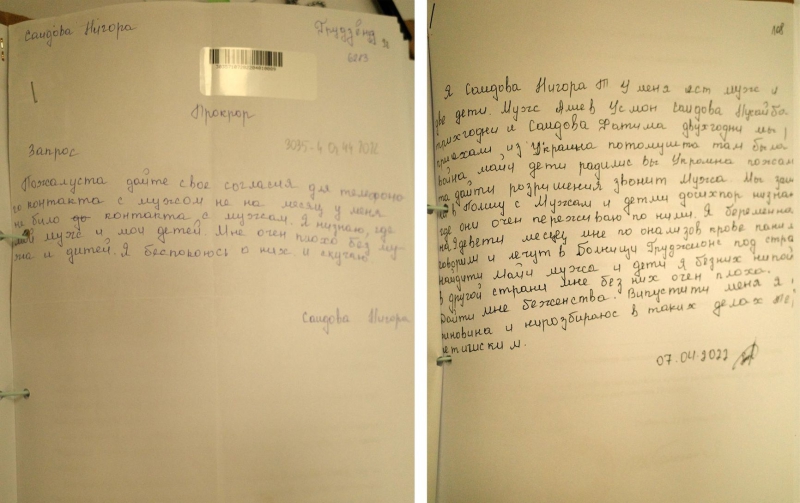 Саидова Нигора
Грудзёнд
Прокрор
Запрос
Пожалуста дайте свое согласия для телефоно
го контакта с мужсом не на месяц у меня
не било до контакта с мужсам. Я низнаю, где
мой мужс и мои детей. Мне очен плохо без му-
жса и дитей. Я беспокоюсь о них и скучаю
Саидова Нигора
108
Я Саидова Нигора Т У меня ест мужс и
две дети. Мужс Ашев Усмон Саидова
трихгодни и Саидова Фатима двухгодни мы
приехали из Украина потомушта там была
война майи дети радилис вы Украина пожсам
та дайти розрушения звонит Мужса. Мы
в Полшу с Мужсам и детми досихпор низнаю
где они очен пережсеваю по ними. Я беременна
на девети месец мне по онализов крове
говорили и лечут в Болници Грудженс под стра
найдити майи мужса и дети я безних
в другой страни мне без них очен плоха.
Дайти мне беженства. Випустити меня я
и нирозбираюс в таких делах
07.04.2022